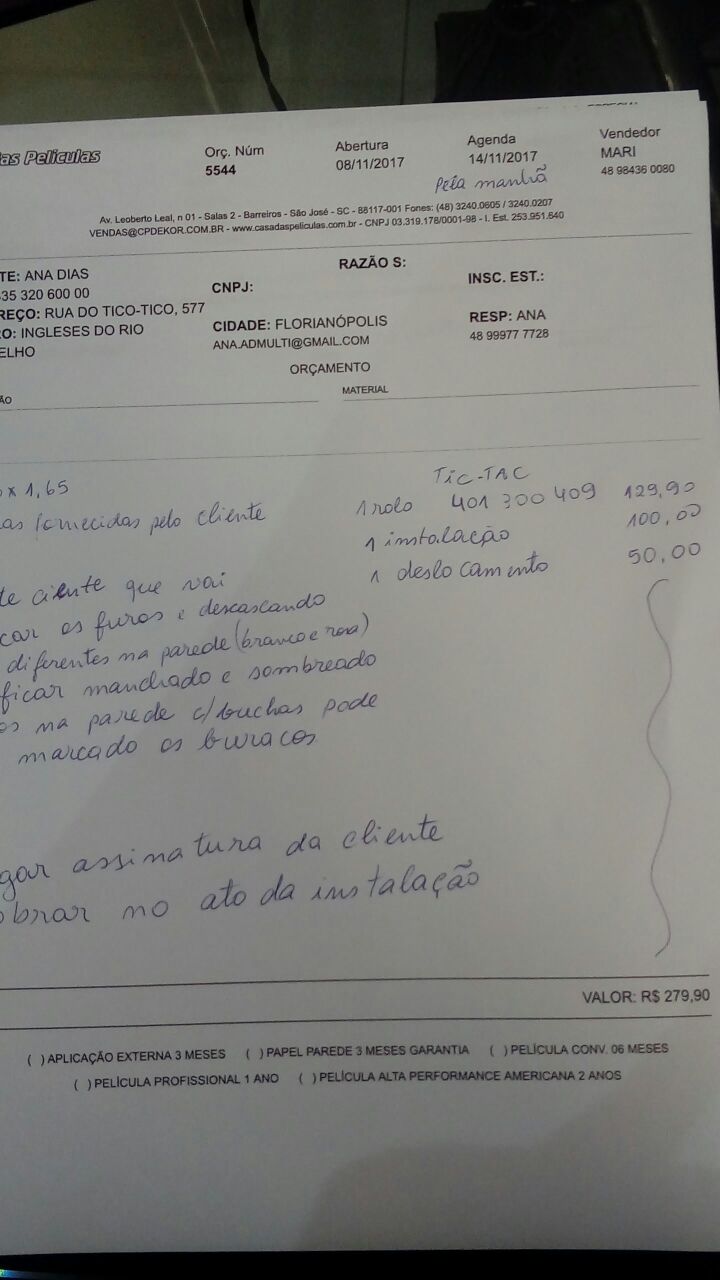 as Películas
Orç. Núm
5544
Abertura
08/11/2017
Agenda
14/11/2017
Pela manhã
Vendedor
MARI
48 98436 0080
Av. Leoberto Leal, n 01 - Salas 2 - Barreiros - São José - SC - 88117-001 Fones: (48) 3240.0605 / 3240.0207
VENDAS@CPDEKOR.COM.BR - www.casadaspeliculas.com.br - CNPJ 03.319.178/0001-98 - I. Est. 253.951.640
TE: ANA DIAS
35 320 600 00
REÇO: RUA DO TICO-TICO, 577
O: INGLESES DO RIO
ELHO
CNPJ:
CIDADE: FLORIANÓPOLIS
ANA.ADMULTI@GMAIL.COM
RAZÃO S:
INSC. EST.:
RESP: ANA
48 99977 7728
ORÇAMENTO
ÃO
MATERIAL
x 1,65
as fornecidas pelo cliente
te ciente que vai
car os furos e descascando
diferentes na parede (branco e rosa)
ficar manchado e sombreado
os na parede c/ buchas pode
marcado os buracos
gar assinatura da cliente
obrar no ato da instalação
TIC-TAC
1 rolo 401 300 409 129,90
1 instalação 100,00
1 deslocamento 50,00
VALOR: R$ 279,90
( ) APLICAÇÃO EXTERNA 3 MESES ( ) PAPEL PAREDE 3 MESES GARANTIA ( ) PELÍCULA CONV. 06 MESES
( ) PELÍCULA PROFISSIONAL 1 ANO ( ) PELÍCULA ALTA PERFORMANCE AMERICANA 2 ANOS